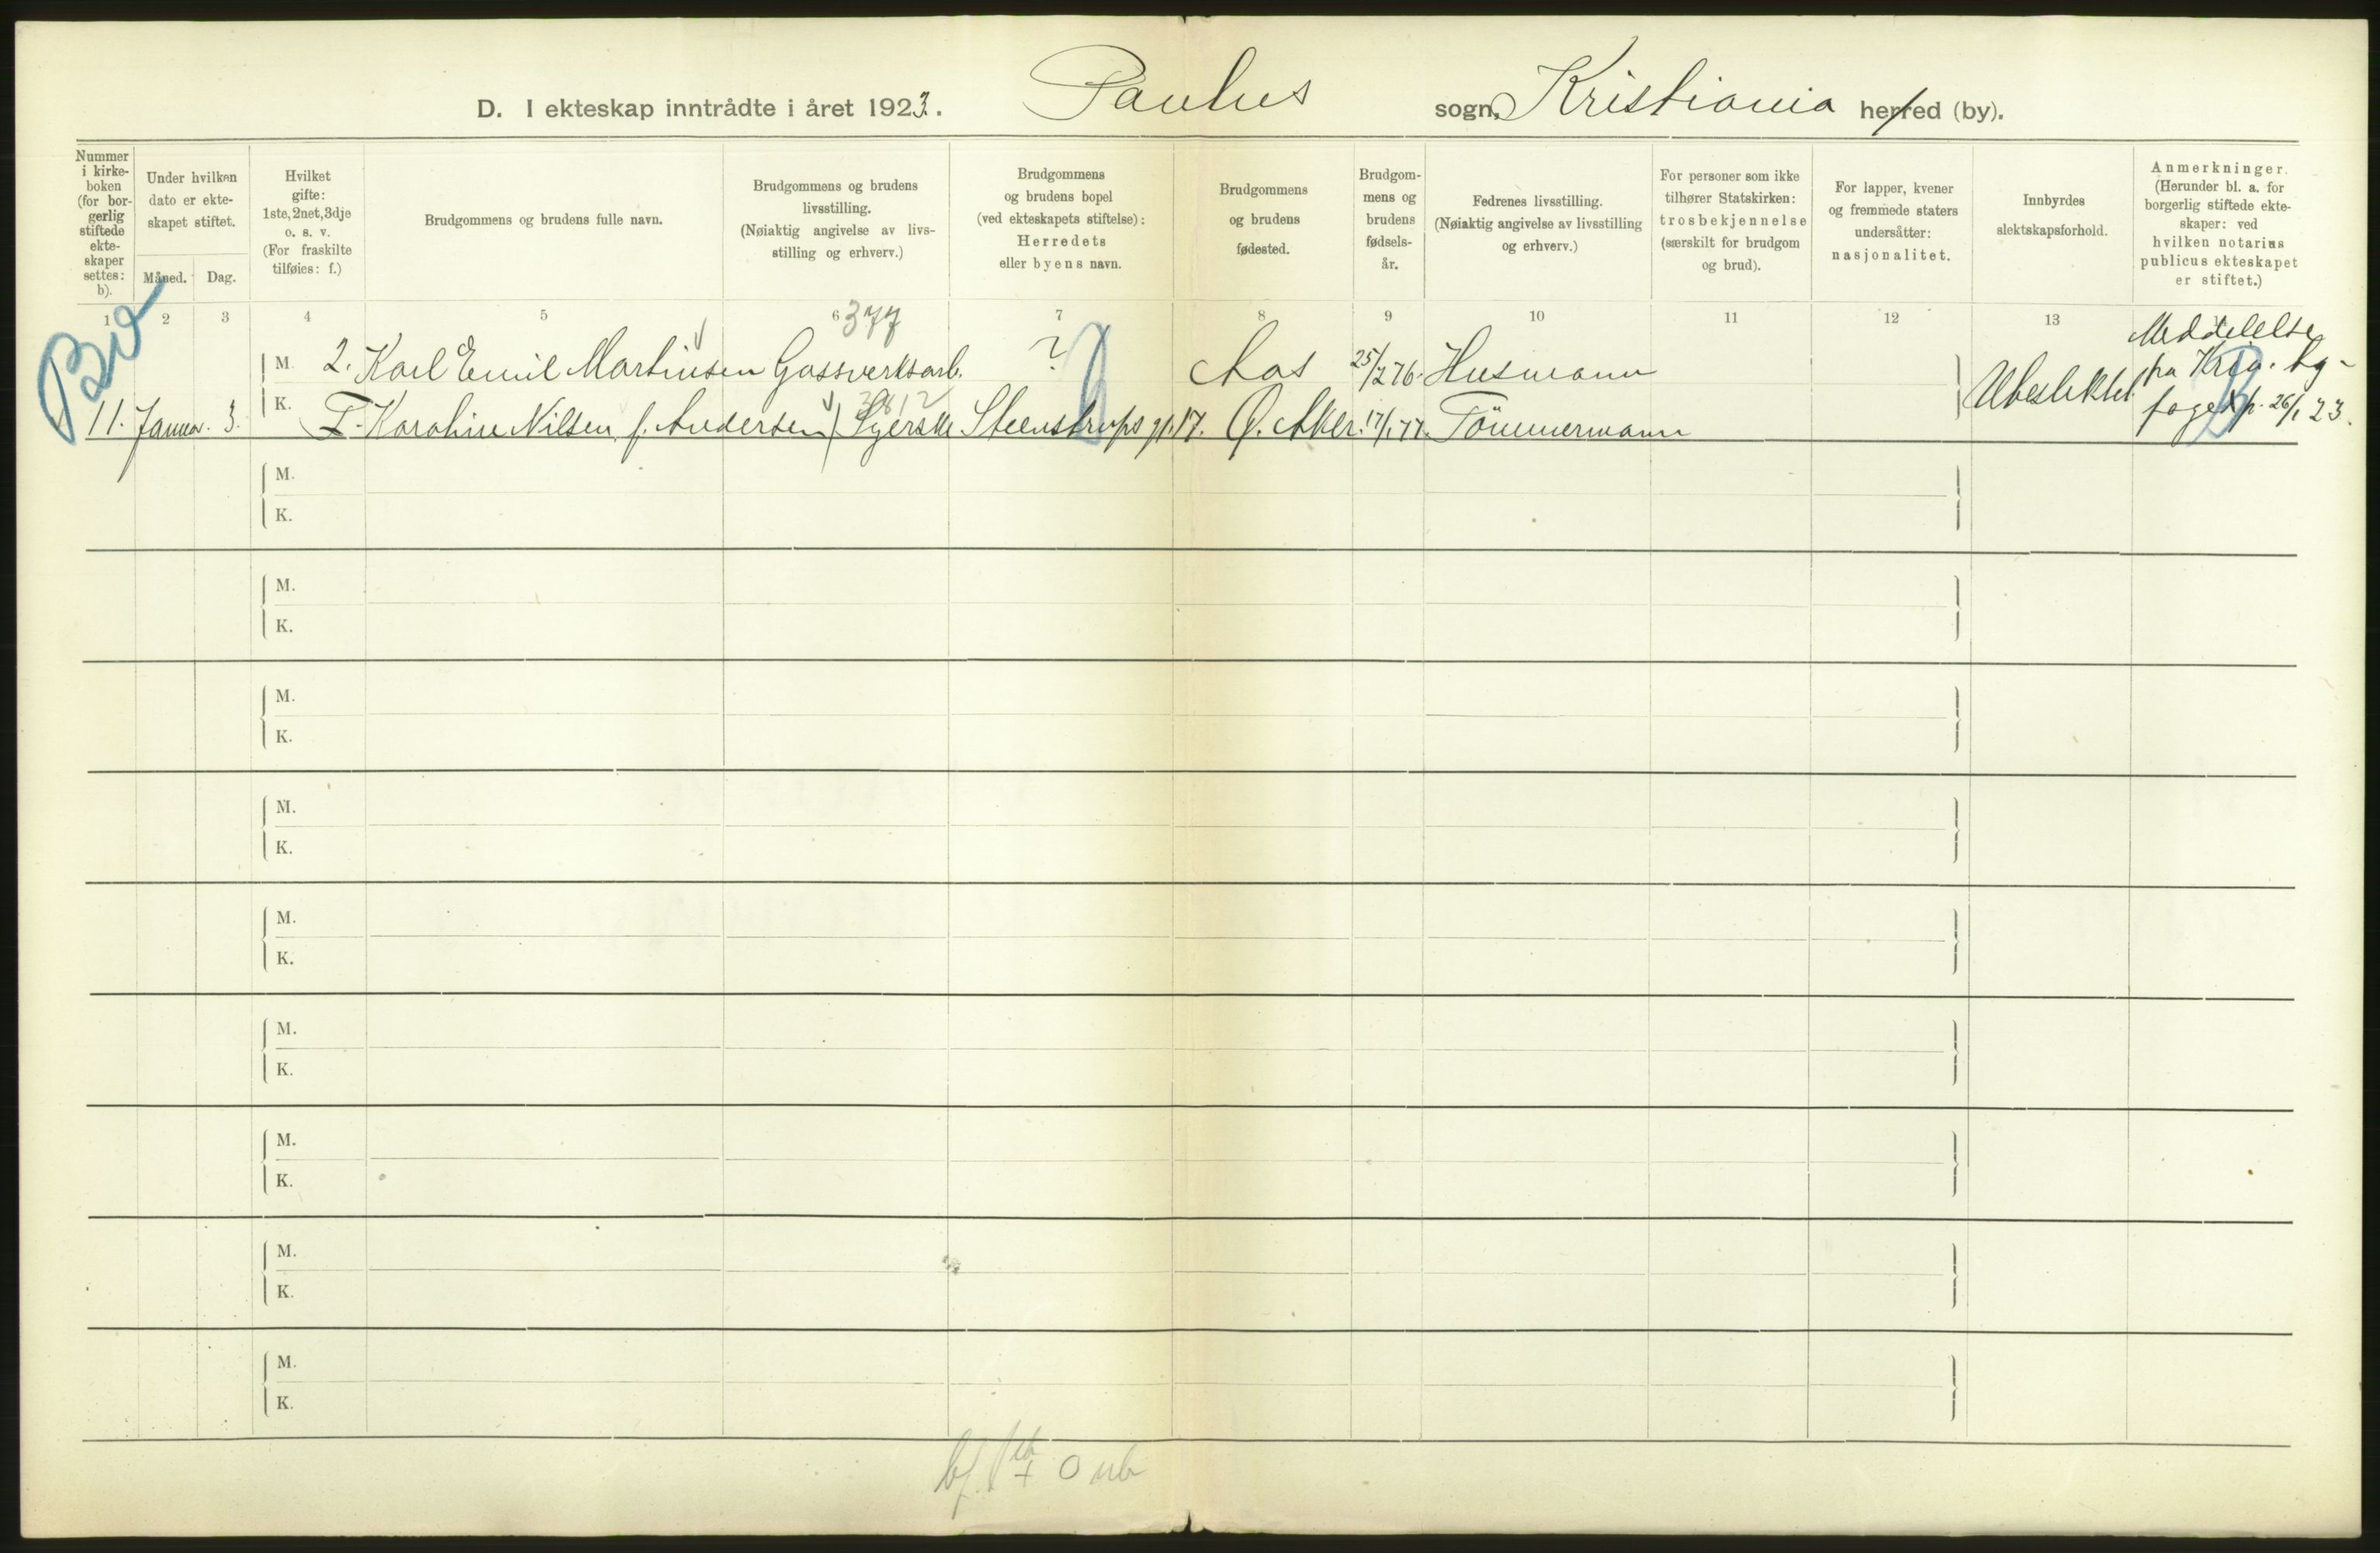 D. I ekteskap inntrådte i året 1923. Paulus sogn, Kristiania herred (by).
Nummer i kirkeboken (for borgerlig stiftede ekteskaper settes: b).
Under hvilken dato er ekteskapet stiftet.
Måned. Dag.
Hvilket gifte: 1ste, 2net, 3dje o. s. v. (For fraskilte tilføies: f.)
Brudgommens og brudens fulle navn.
Brudgommens og brudens livsstilling. (Nøiaktig angivelse av livsstilling og erhverv.)
Brudgommens og brudens bopel (ved ekteskapets stiftelse): Herredets eller byens navn.
Brudgommens og brudens fødested.
Brudgommens og brudens fødselsår.
Fedrenes livsstilling. (Nøiaktig angivelse av livsstilling og erhverv.)
For personer som ikke tilhører Statskirken: trosbekjennelse (særskilt for brudgom og brud).
For lapper, kvener og fremmede staters undersåtter: nasjonalitet.
Innbyrdes slektskapsforhold.
Anmerkninger. (Herunder bl. a. for borgerlig stiftede ekteskaper: ved hvilken notarius publicus ekteskapet er stiftet.)
1 2 3 4 5 6 7 8 9 10 11 12 13
377
M. 2. Karl Emil Martinsen Gassverksarb. ? Aas 25/2 76. Husmann
11. Januar. 3. K. F. Karoline Nilsen f. Andersen Syerske Steenstrups gt. 17. Ø. Aker. 17/1 77. Tömmermann
Ubeslektet
Meddelelse
fra Kria. by-
foged p. 26/1 23.
B
M.
K.
M.
K.
M.
K.
M.
K.
M.
K.
M.
K.
M.
K.
M.
K.
M.
K.